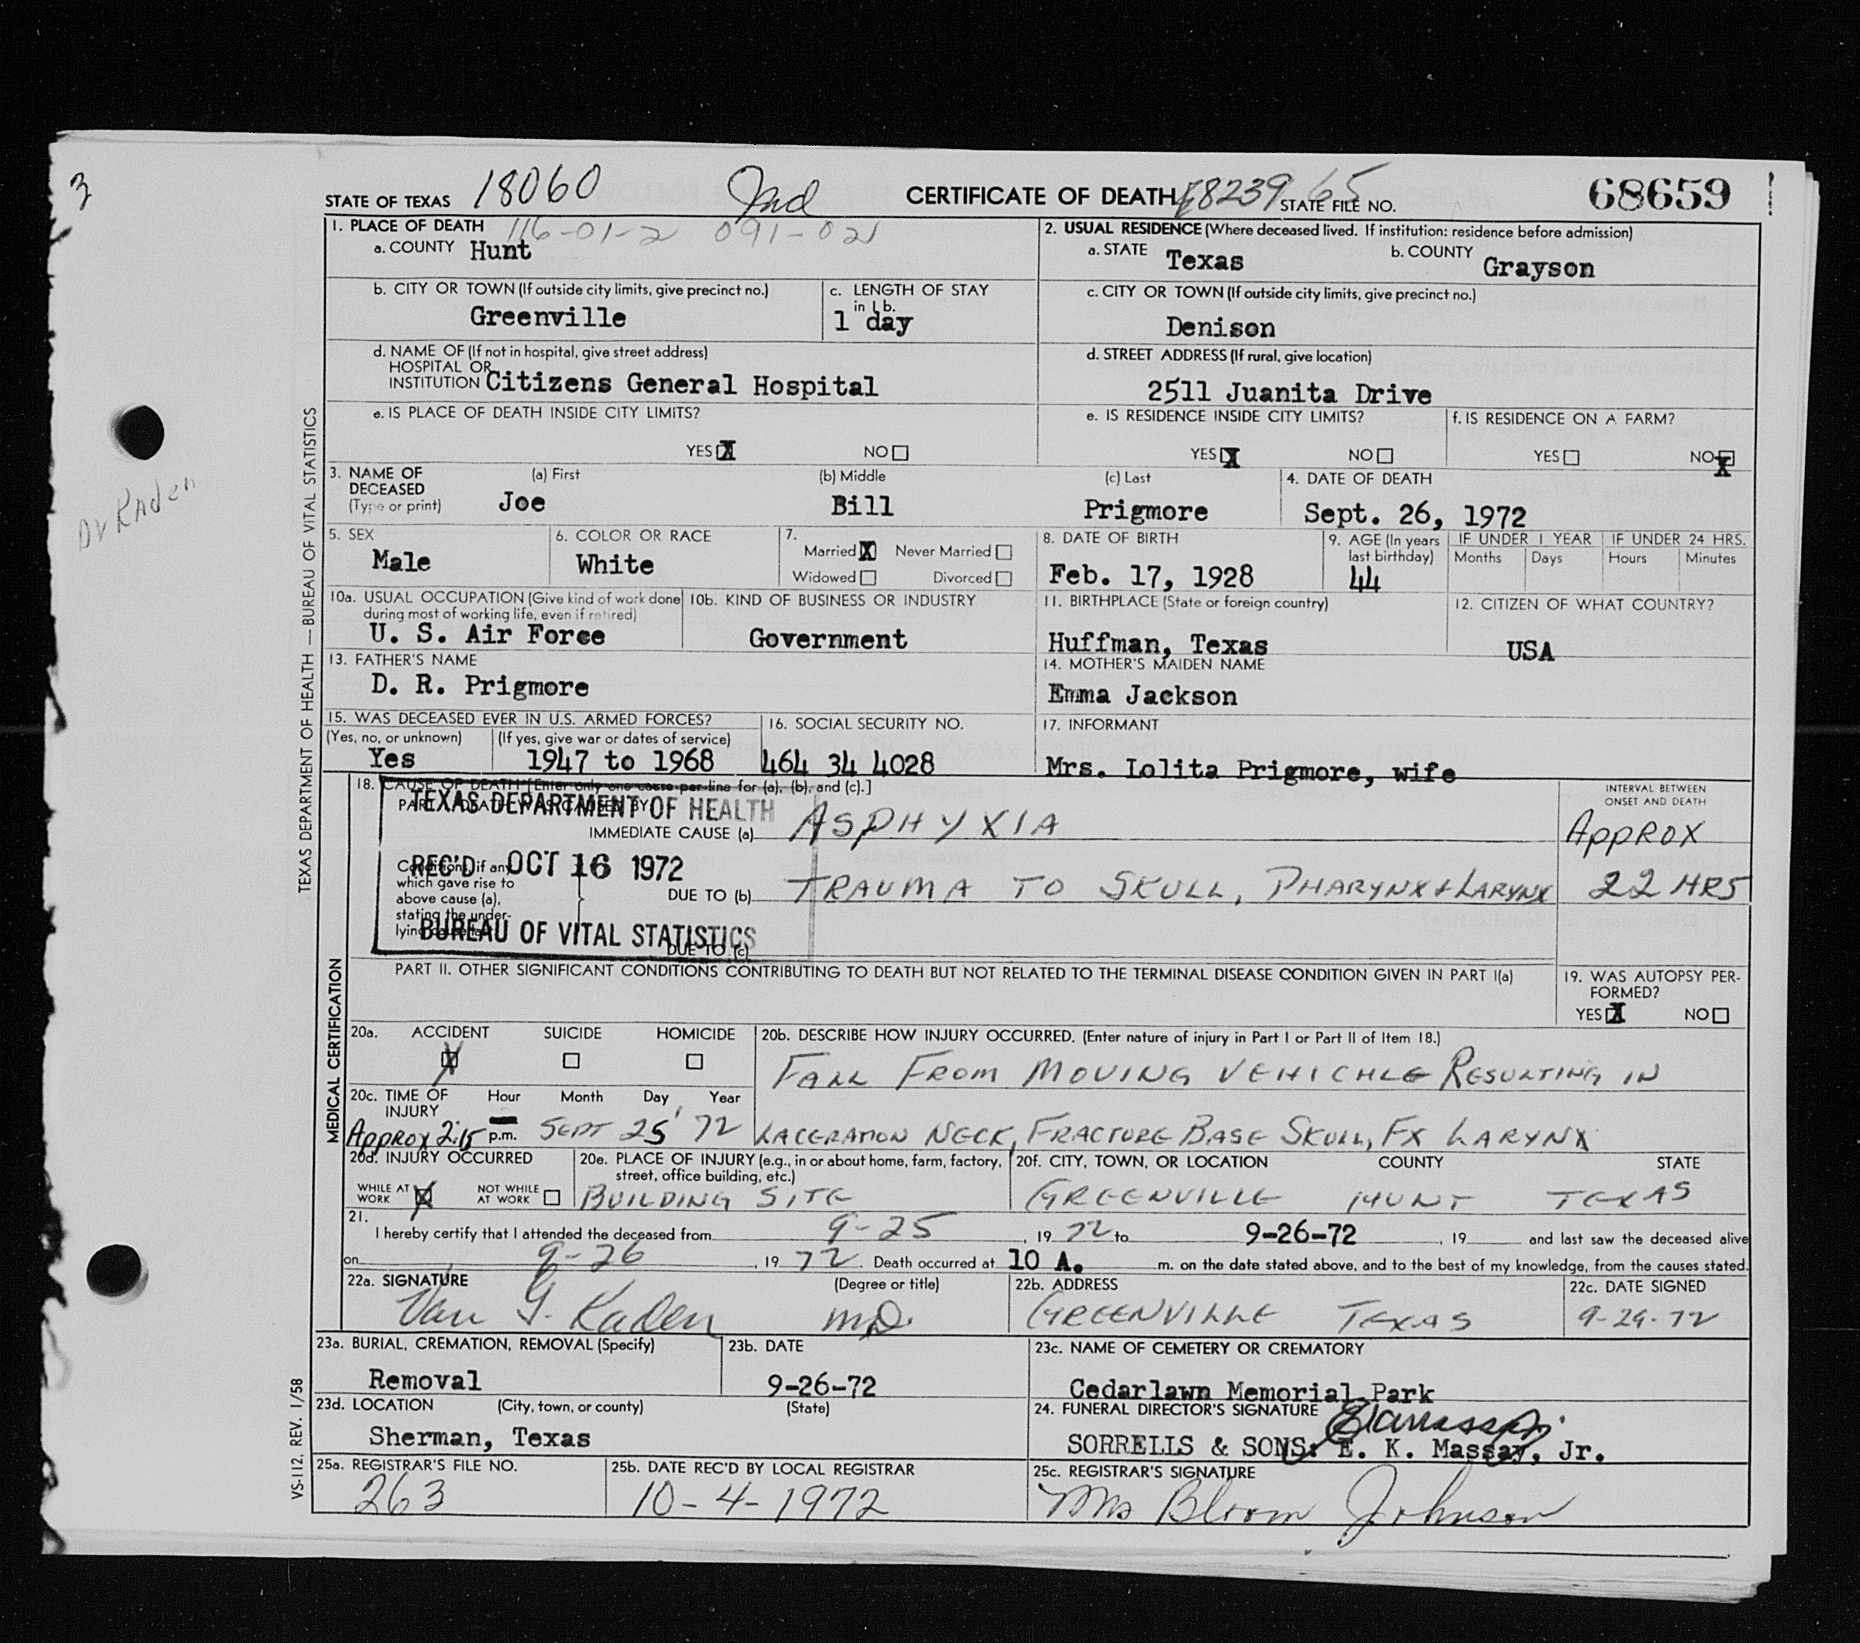 3
STATE OF TEXAS 18060 CERTIFICATE OF DEATH E8239 65 STATE FILE NO. 68659
1. PLACE OF DEATH 116-01-2 091-021
a. COUNTY Hunt
2. USUAL RESIDENCE (Where deceased lived. If institution: residence before admission)
a. STATE Texas b. COUNTY Grayson
b. CITY OR TOWN (If outside city limits, give precinct no.) Greenville
c. LENGTH OF STAY in 1b. 1 day
c. CITY OR TOWN (If outside city limits, give precinct no.) Denison
d. NAME OF (If not in hospital, give street address)
HOSPITAL OR
INSTITUTION Citizens General Hospital
d. STREET ADDRESS (If rural, give location)
2511 Juanita Drive
e. IS PLACE OF DEATH INSIDE CITY LIMITS?
YES X NO
e. IS RESIDENCE INSIDE CITY LIMITS?
YES X NO
f. IS RESIDENCE ON A FARM?
YES NO X
Dr Kaden
3. NAME OF DECEASED (Type or print)
(a) First Joe (b) Middle Bill (c) Last Prigmore
4. DATE OF DEATH
Sept. 26, 1972
5. SEX Male
6. COLOR OR RACE White
7. Married X Never Married
Widowed Divorced
8. DATE OF BIRTH
Feb. 17, 1928
9. AGE (In years last birthday) 44
IF UNDER 1 YEAR Months Days
IF UNDER 24 HRS. Hours Minutes
10a. USUAL OCCUPATION (Give kind of work done
during most of working life, even if retired)
U. S. Air Force
10b. KIND OF BUSINESS OR INDUSTRY
Government
11. BIRTHPLACE (State or foreign country)
Huffman, Texas
12. CITIZEN OF WHAT COUNTRY?
USA
13. FATHER'S NAME
D. R. Prigmore
14. MOTHER'S MAIDEN NAME
Emma Jackson
15. WAS DECEASED EVER IN U.S. ARMED FORCES?
(Yes, no, or unknown) Yes
(If yes, give war or dates of service) 1947 to 1968
16. SOCIAL SECURITY NO.
464 34 4028
17. INFORMANT
Mrs. Lolita Prigmore, wife
18. CAUSE OF DEATH [Enter only one cause per line for (a), (b), and (c).]
IMMEDIATE CAUSE (a) ASPHYXIA
Conditions, if any,
which gave rise to
above cause (a),
stating the under-
lying
DUE TO (b) TRAUMA TO SKULL, PHARYNX & LARYNX
DUE TO (c)
INTERVAL BETWEEN
ONSET AND DEATH
APPROX
22 HRS
TEXAS DEPARTMENT OF HEALTH
REC'D OCT 16 1972
BUREAU OF VITAL STATISTICS
PART II. OTHER SIGNIFICANT CONDITIONS CONTRIBUTING TO DEATH BUT NOT RELATED TO THE TERMINAL DISEASE CONDITION GIVEN IN PART I(a)
19. WAS AUTOPSY PER-
FORMED?
YES X NO
20a. ACCIDENT X SUICIDE HOMICIDE
20b. DESCRIBE HOW INJURY OCCURRED. (Enter nature of injury in Part I or Part II of Item 18.)
FALL FROM MOVING VEHICHLE RESULTING IN
LACERATION NECK, FRACTURE BASE SKULL, FX LARYNX
20c. TIME OF INJURY Hour Month Day Year
APPROX 2:15 p.m. SEPT 25 '72
20d. INJURY OCCURRED
WHILE AT WORK X NOT WHILE AT WORK
20e. PLACE OF INJURY (e.g., in or about home, farm, factory,
street, office building, etc.)
BUILDING SITE
20f. CITY, TOWN, OR LOCATION COUNTY STATE
GREENVILLE HUNT TEXAS
21.
I hereby certify that I attended the deceased from 9-25, 1972 to 9-26-72, 19 and last saw the deceased alive
on 9-26, 1972. Death occurred at 10 A. m. on the date stated above, and to the best of my knowledge, from the causes stated.
22a. SIGNATURE (Degree or title)
Van G. Kaden MD.
22b. ADDRESS
GREENVILLE TEXAS
22c. DATE SIGNED
9-29-72
23a. BURIAL, CREMATION, REMOVAL (Specify)
Removal
23b. DATE
9-26-72
23c. NAME OF CEMETERY OR CREMATORY
Cedarlawn Memorial Park
23d. LOCATION (City, town, or county) (State)
Sherman, Texas
24. FUNERAL DIRECTOR'S SIGNATURE
SORRELLS & SONS: E. K. Massay, Jr.
25a. REGISTRAR'S FILE NO.
263
25b. DATE REC'D BY LOCAL REGISTRAR
10-4-1972
25c. REGISTRAR'S SIGNATURE
Mrs Bloom Johnson
TEXAS DEPARTMENT OF HEALTH — BUREAU OF VITAL STATISTICS
MEDICAL CERTIFICATION
VS-112, REV. 1/58